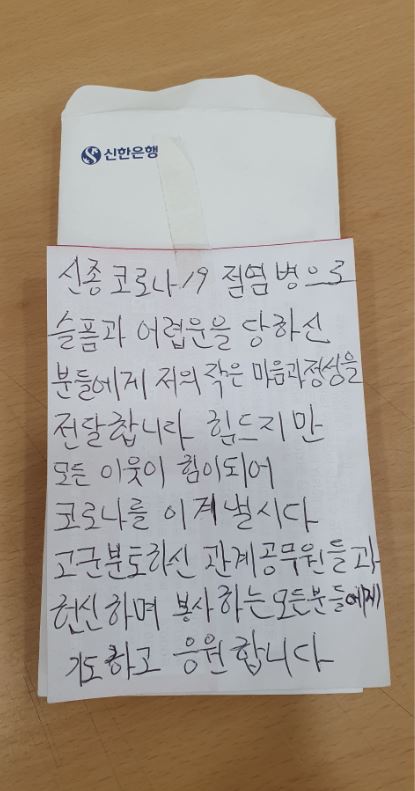 신한은행
신종 코로나19 점염병으로
슬픔과 어렵운을 당하신
분들에게 저의 작은 마음과정성을
전달합니다 힘드지만
모든 이웃이 힘이되어
코로나를 이겨낼시다
고군분토하신 관계공무원들과
헌신하며 봉사하는모든분들에게
기도하고 응원합니다